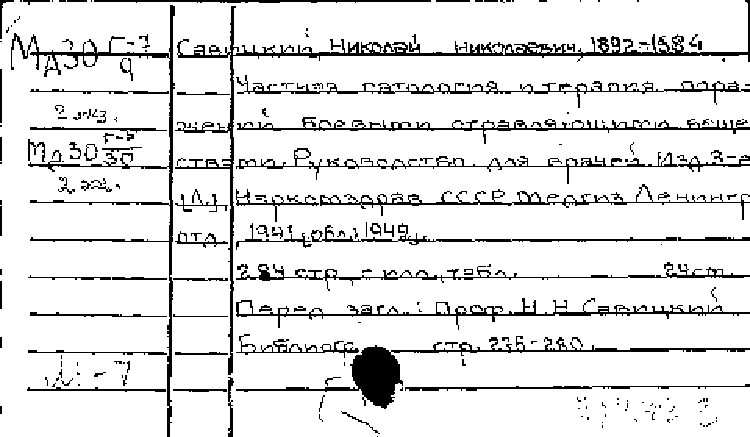 МД30 Г-7/9
2 экз.
МД30 Г-7/30
2 экз.
Савицкий, Николай Николаевич, 1892-1984
Частная патология и терапия пора-
жений боевыми отравляющими веще-
ствами. Руководство для врачей. Изд. 3-е
[Л.], Наркомздрав СССР Медгиз Ленингр.
отд., 1941, [обл.: 1940].
284 стр. с илл., табл. 24 см.
Перед загл.: Проф. Н. Н. Савицкий
Библиогр. стр. 275-280.